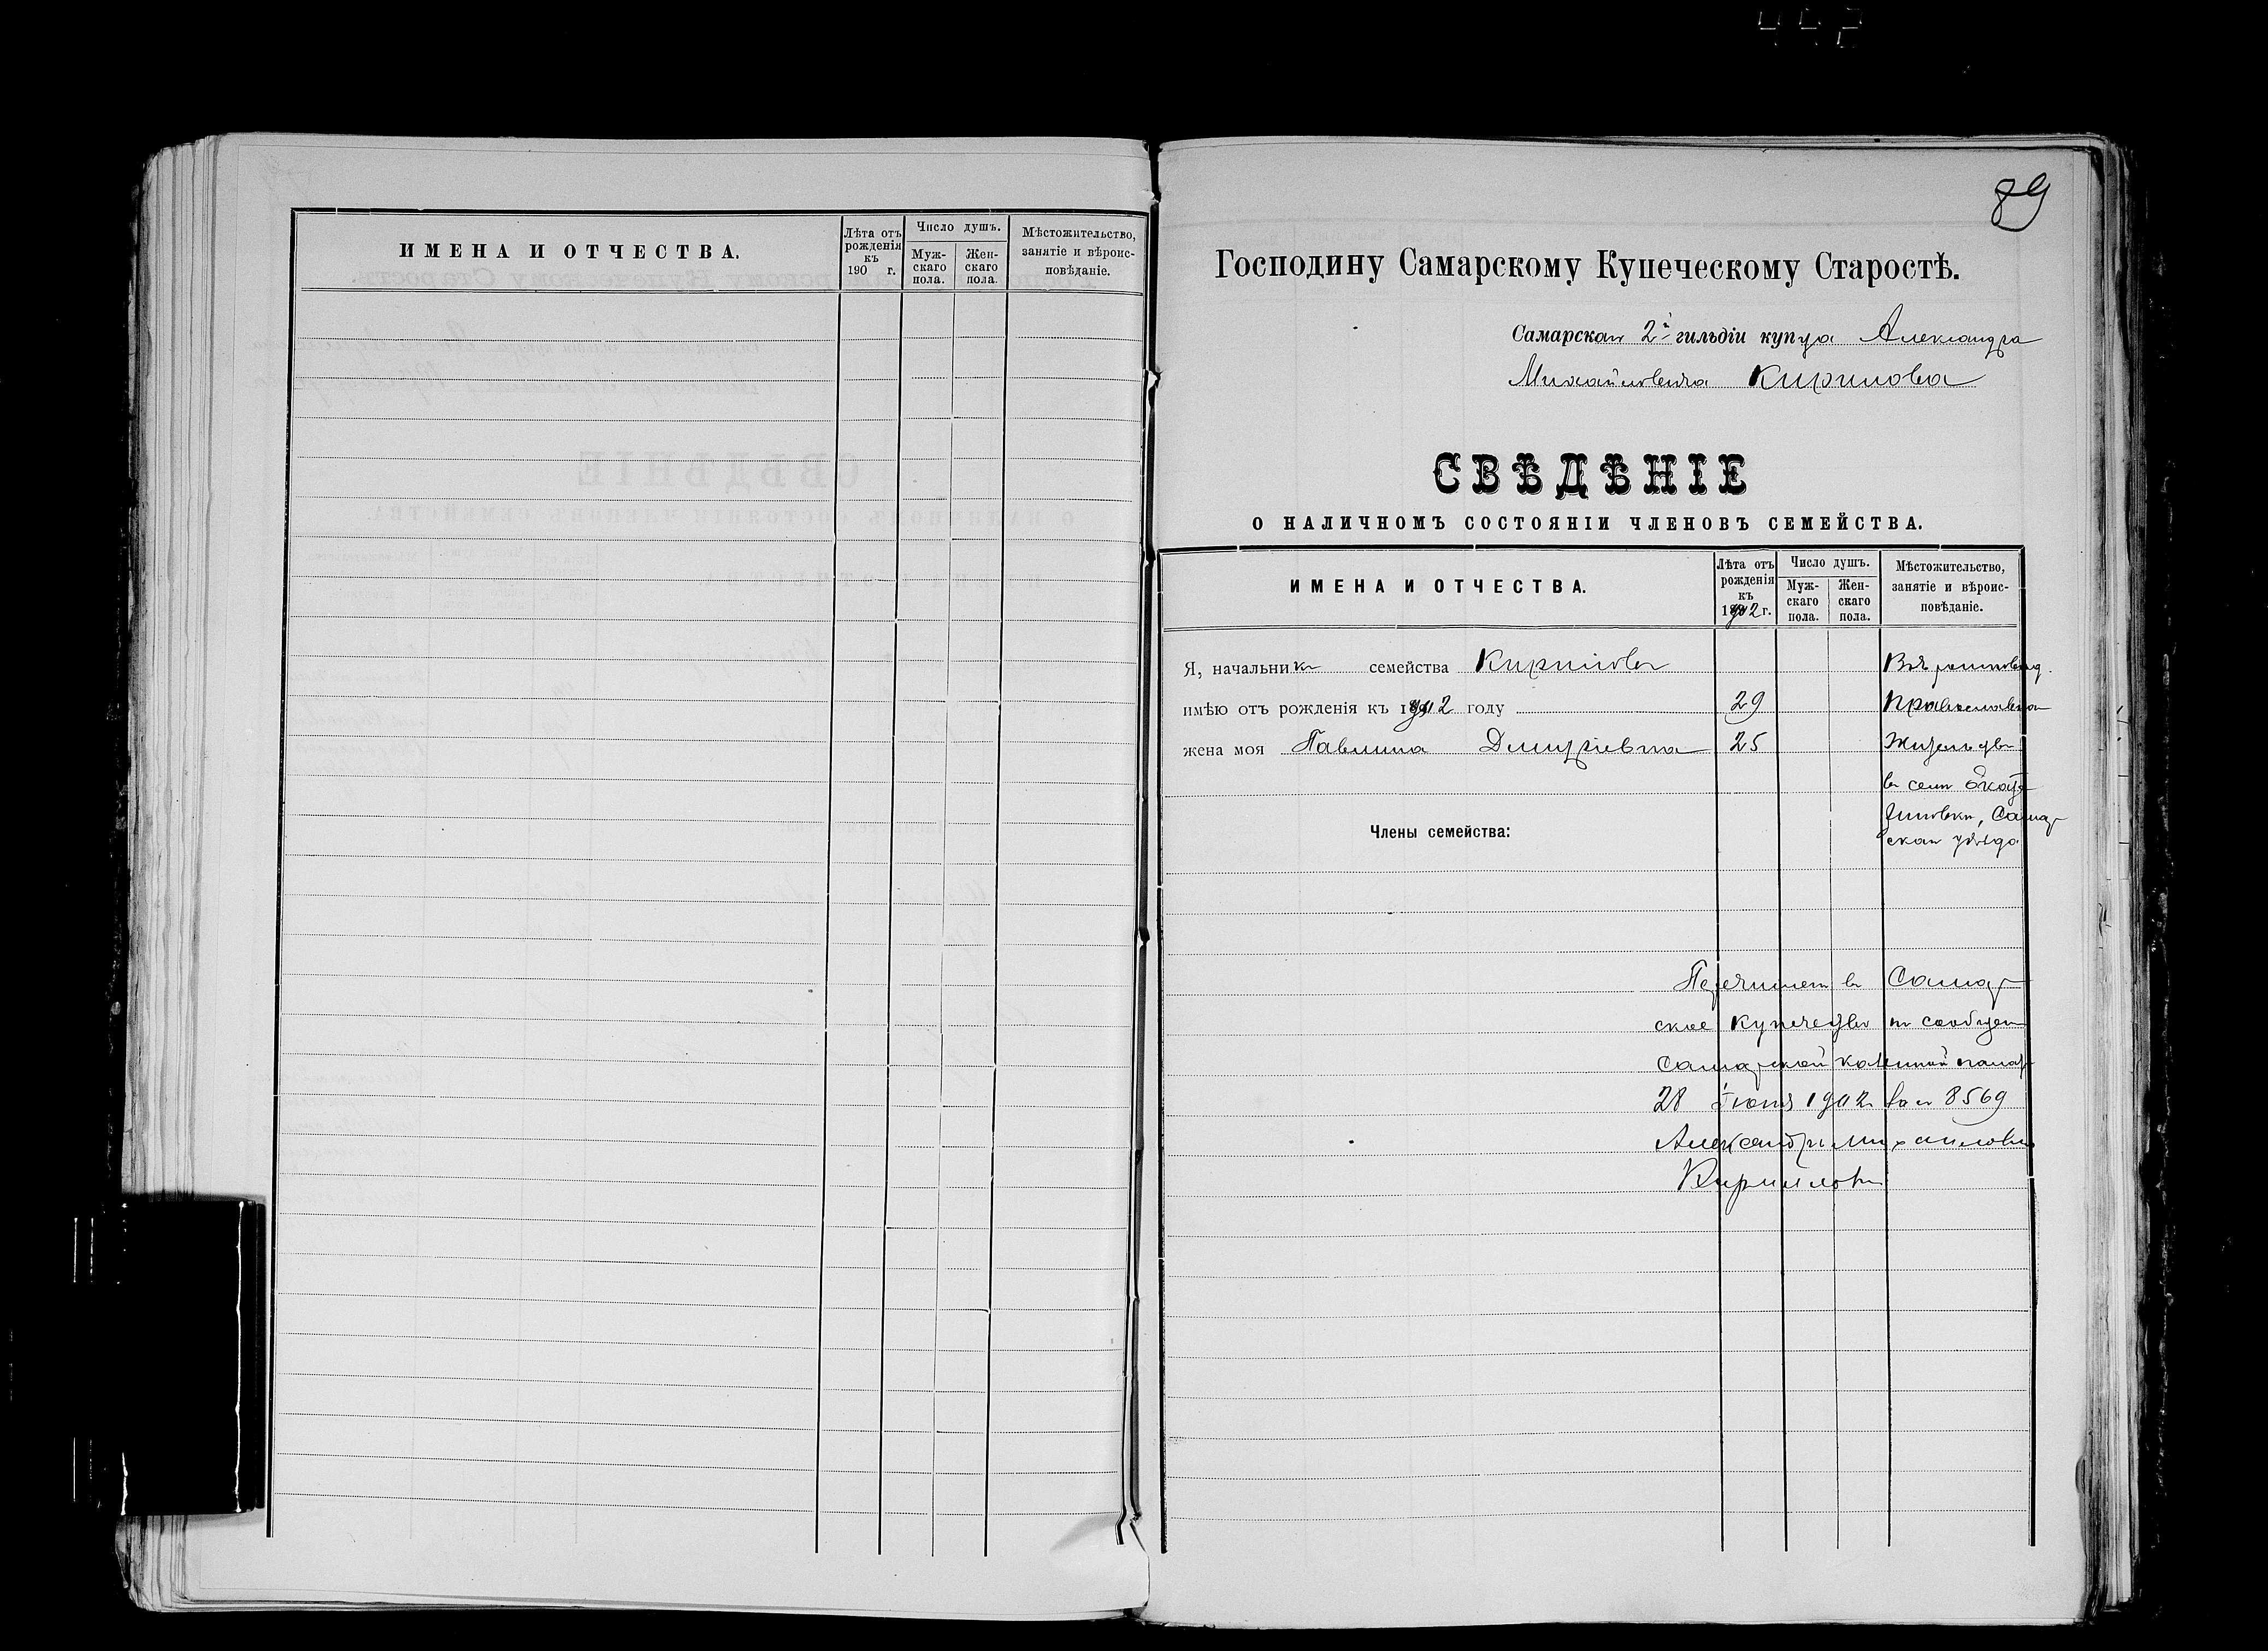 442
ИМЕНА И ОТЧЕСТВА.
Лѣта отъ рожденія къ 190 г.
Число душъ.
Мужскаго пола.
Женскаго пола.
Мѣстожительство, занятіе и вѣроисповѣданіе.
89
Господину Самарскому Купеческому Старостѣ.
Самарскаго 2й гильдіи купца Александра
Михайловича Кирилова
СВѢДѢНІЕ
О НАЛИЧНОМЪ СОСТОЯНІИ ЧЛЕНОВЪ СЕМЕЙСТВА.
ИМЕНА И ОТЧЕСТВА.
Лѣта отъ рожденія къ 1902 г.
Число душъ.
Мужскаго пола.
Женскаго пола.
Мѣстожительство, занятіе и вѣроисповѣданіе.
Я, начальникъ семейства Кириловъ
имѣю отъ рожденія къ 1902 году 29 Православнаго
жена моя Павлина Дмитріевна 25 Жительство
въ селѣ Екате
риновкѣ, Самар
скаго уѣзда
Члены семейства:
Перечисленъ въ Самар
ское купечество по сообщен
Самарской казенной палат
28 Іюня 1902 за № 8569
Александръ Михайловъ
Кирилловъ